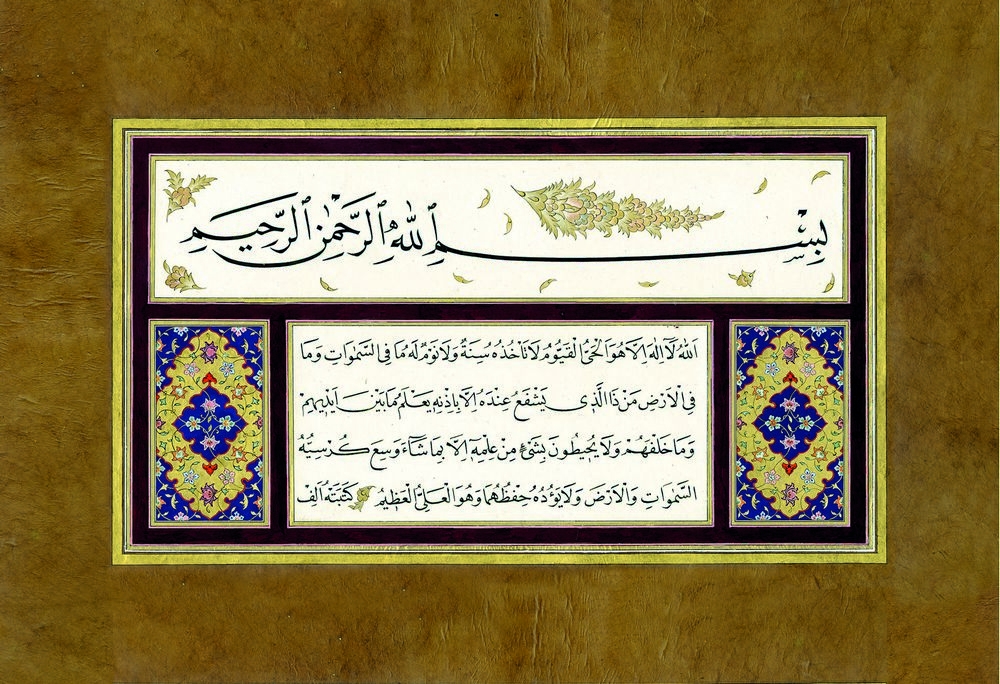 بِسْمِ ٱللّٰهِ ٱلرَّحْمٰنِ ٱلرَّحِيمِ
اَللّٰهُ لَٓا اِلٰهَ اِلَّا هُوَ الْحَىُّ الْقَيُّومُ لَا تَأْخُذُهُ سِنَةٌ وَلَا نَوْمٌ لَهُ مَا فِى السَّمٰوَاتِ وَمَا
فِى الْاَرْضِ مَنْ ذَا الَّذِى يَشْفَعُ عِنْدَهُ اِلَّا بِاِذْنِهِ يَعْلَمُ مَا بَيْنَ اَيْدِيهِمْ
وَمَا خَلْفَهُمْ وَلَا يُحِيطُونَ بِشَىْءٍ مِنْ عِلْمِهِ اِلَّا بِمَا شَٓاءَ وَسِعَ كُرْسِيُّهُ
السَّمٰوَاتِ وَالْاَرْضَ وَلَا يَؤُدُهُ حِفْظُهُمَا وَهُوَ الْعَلِىُّ الْعَظِيمُ كَتَبَتْهُ اَلِف